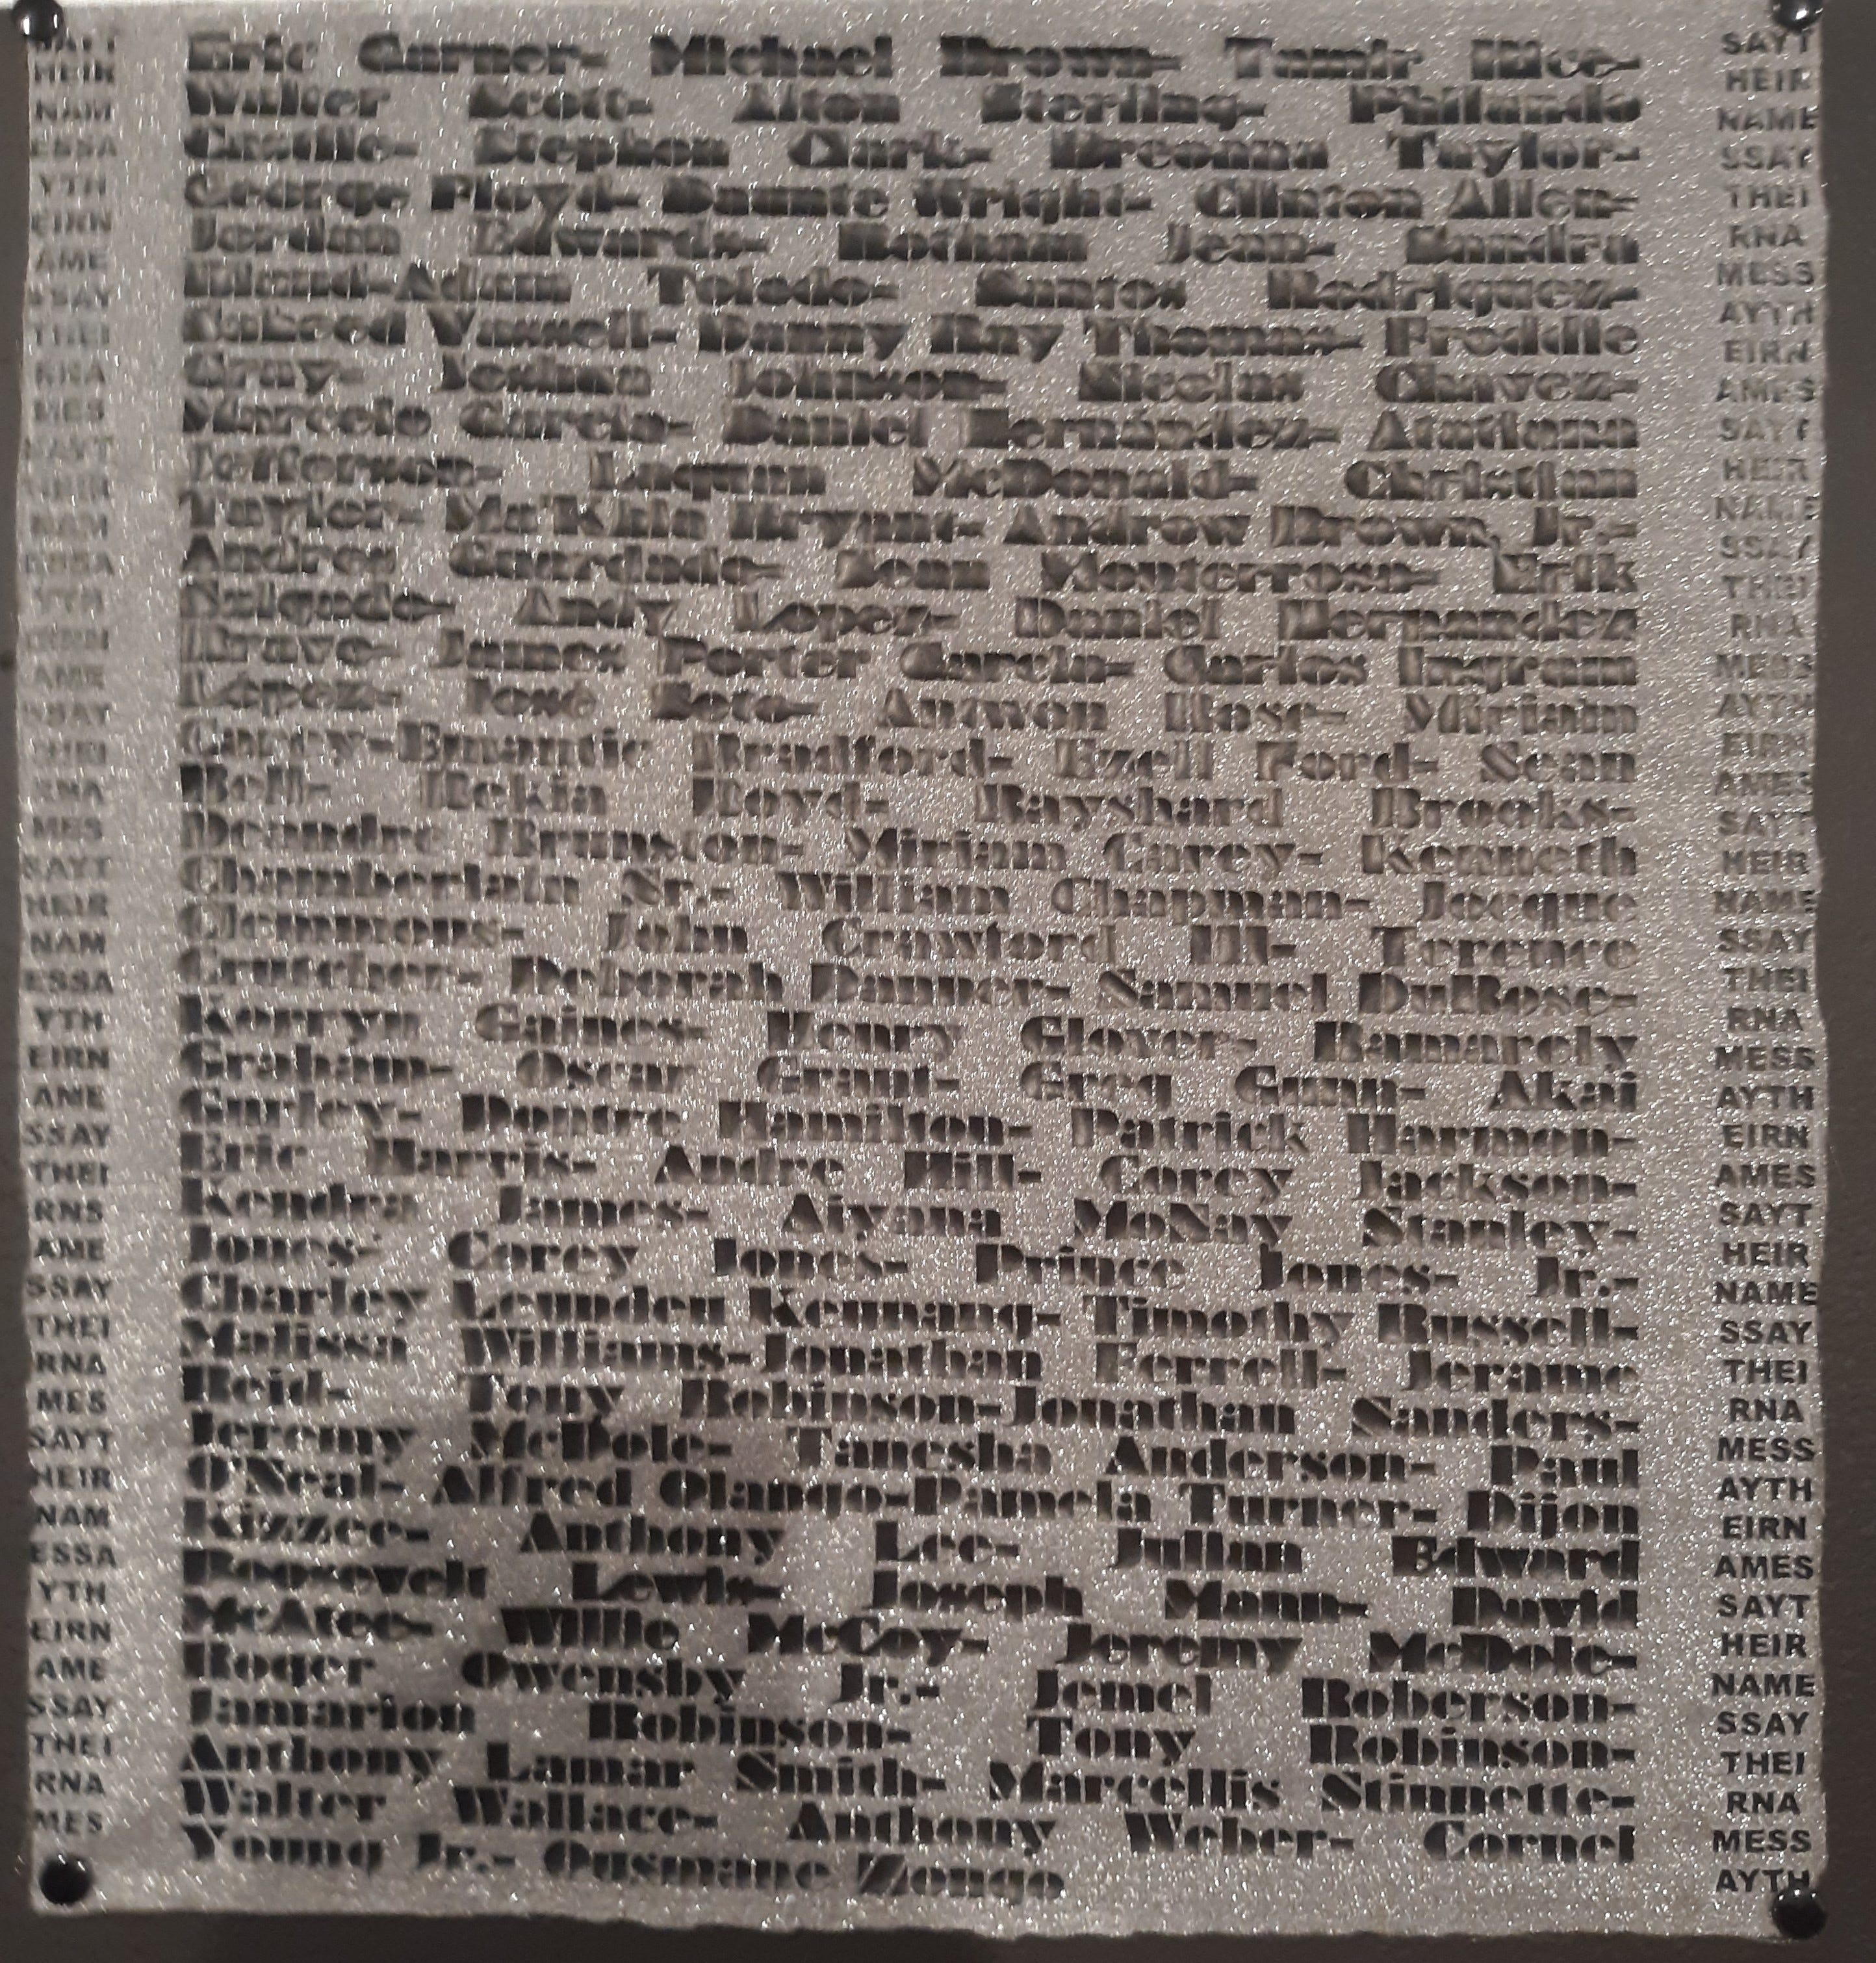 Eric Garner- Michael Brown- Tamir Rice-
Walter Scott- Alton Sterling- Philando
Castile- Stephon Clark- Breonna Taylor-
George Floyd- Daunte Wright- Clinton Allen-
Jordan Edwards- Botham Jean- Sandra
Bland-Adam Toledo- Santos Rodriguez-
Saheed Vassell- Danny Ray Thomas- Freddie
Gray- Joshua Johnson- Nicolas Chavez-
Marcelo Garcia- Daniel Hernandez- Atatiana
Jefferson- Laquan McDonald- Christian
Taylor- Ma'Khia Bryant- Andrew Brown, Jr.-
Andres Guardado- Sean Monterrosa- Erik
Salgado- Andy Lopez- Daniel Hernandez
Bravo- James Porter Garcia- Carlos Ingram
López- José Soto- Antwon Rose- Miriam
Carey-Emantic Bradford- Ezell Ford- Sean
Bell- Rekia Boyd- Rayshard Brooks-
Deandre Brunston- Miriam Carey- Kenneth
Chamberlain Sr.- William Chapman- Jocque
Clemmons- John Crawford III- Terence
Crutcher- Deborah Danner- Samuel DuBose-
Korryn Gaines- Henry Glover- Ramarely
Graham- Oscar Grant- Greg Gunn- Akai
Gurley- Dontre Hamilton- Patrick Harmon-
Eric Harris- Andre Hill- Corey Jackson-
Kendra James- Aiyana MoNay Stanley-
Jones- Corey Jones- Prince Jones- Jr.-
Charley Leundeu Keunang- Timothy Russell-
Malissa Williams-Jonathan Ferrell- Jerame
Reid- Tony Robinson-Jonathan Sanders-
Jeremy McDole- Tanesha Anderson- Paul
O'Neal- Alfred Olango-Pamela Turner- Dijon
Kizzee- Anthony Lee- Julian Edward
Roosevelt Lewis- Joseph Mann- David
McAtee- Willie McCoy- Jeremy McDole-
Roger Owensby Jr.- Jemel Roberson-
Jamarion Robinson- Tony Robinson-
Anthony Lamar Smith- Marcellis Stinnette-
Walter Wallace- Anthony Weber- Cornel
Young Jr.- Ousmane Zongo
SAYT
HEIR
NAME
SSAY
THEI
RNA
MESS
AYTH
EIRN
AMES
SAYT
HEIR
NAME
SSAY
THEI
RNA
MESS
AYTH
EIRN
AMES
SAYT
HEIR
NAME
SSAY
THEI
RNA
MESS
AYTH
EIRN
AMES
SAYT
HEIR
NAME
SSAY
THEI
RNA
MESS
AYTH
EIRN
AMES
SAYT
HEIR
NAME
SSAY
THEI
RNA
MESS
AYTH